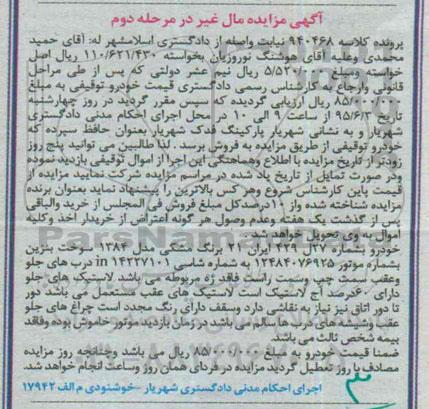 آگهی مزایده مال غیر در مرحله دوم
پرونده کلاسه ۹۴۰۴۶۸ نیابت واصله از دادگستری اسلامشهر له: آقای حمید
محمدی وعلیه آقای هوشنگ نوروزیان بخواسته ۱۱۰/۶۲۱/۴۳۰ ریال اصل
خواسته ومبلغ ریال نیم عشر دولتی که پس از طی مراحل
قانونی وارجاع به کارشناس رسمی دادگستری قیمت خودرو توقیفی به مبلغ
ریال ارزیابی گردیده که سپس مقرر گردید در روز چهارشنبه
تاریخ ۹۵/۶/۳ از ساعت ۹ الی ۱۰ در محل اجرای احکام مدنی دادگستری
شهریار و به نشانی شهریار پارکینگ فدک شهریار بعنوان حافظ سپرده که
خودرو توقیفی از طریق مزایده به فروش برسد . لذا طالبین می توانید پنج روز
زودتر از تاریخ مزایده با اطلاع وهماهنگی این اجرا از اموال توقیفی بازدید نموده
ودر صورت تمایل از تاریخ یاد شده در مراسم مزایده شرکت نمایید مزایده از
قیمت پاین کارشناس شروع وهر کس بالاترین را پیشنهاد نماید بعنوان برنده
مزایده شناخته شده واز ۱۰درصدکل مبلغ فروش فی المجلس از خرید والباقی
پس از گذشت یک هفته وعدم وصول هر گونه اعتراض از خریدار اخذ وکلیه
اموال به وی تحویل خواهد شد.
خودرو بشماره ۲۷ل۴۲۹ ایران ۲۱ برنگ مشکی مدل ۱۳۸۴ سوخت بنزین
بشماره موتور ۱۲۴۸۴۰۷۶۹۲۵ به شماره شاسی ۱۴۲۲۷۱۰۱ in درب های جلو
وعقب سمت چپ وسمت راست فاقد زه مربوطه می باشد لاستیک های جلو
دارای ۶۰درصد آج لاستیک است لاستیک های عقب مستعمل می باشد دور
تا دور اتاق نیز نیاز به نقاشی دارد وسقف دارای رنگ مجدد است چراغ های جلو
عقب وشیشه های درب ها سالم می باشد در زمان بازدید موتور خاموش بوده وفاقد
بیمه شخص ثالث می باشد.
ضمنا قیمت خودرو به مبلغ ۸۵/۰۰۰/۰۰۰ ریال می باشد وچنانچه روز مزایده
مصادف با روز تعطیل گردید مزایده در فردای همان روز وساعت انجام خواهد شد.
اجرای احکام مدنی دادگستری شهریار -خوشنودی م الف ۱۷۹۴۲